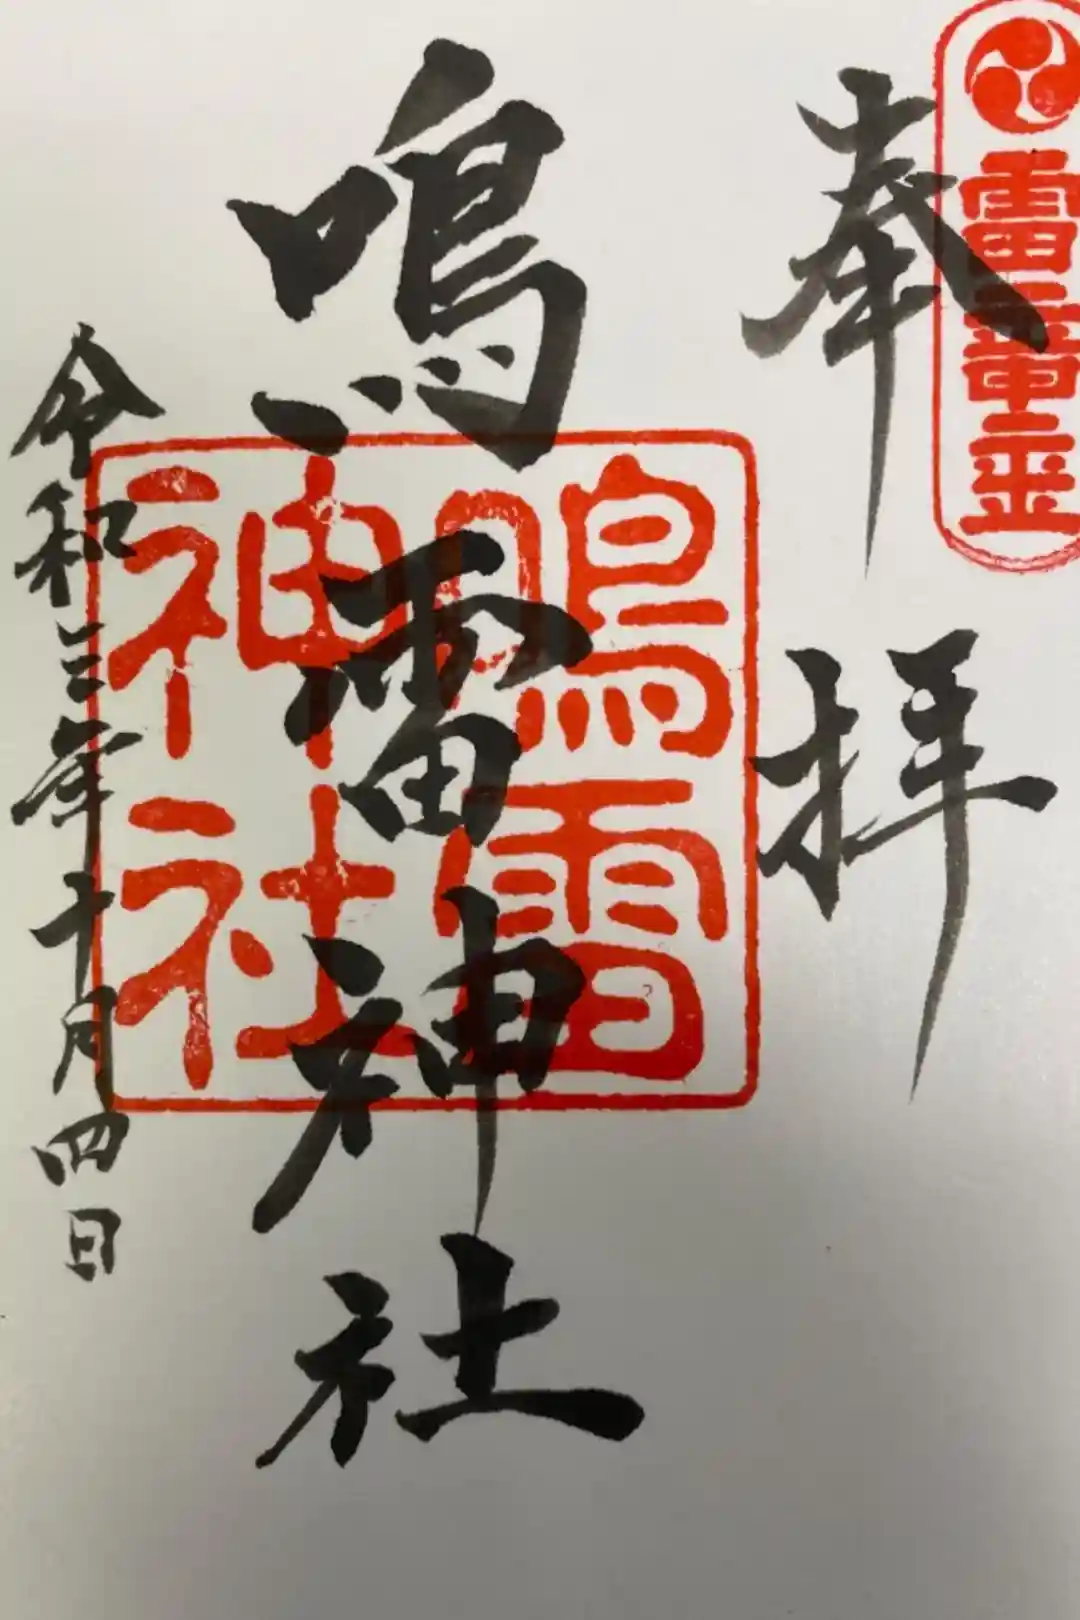 雷
奉拝
鳴雷神社
鳴雷
神社
令和三年十月四日